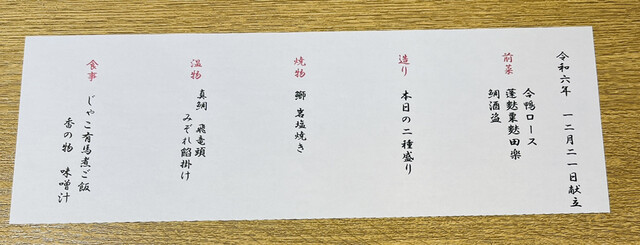 令和六年　一二月二一日献立
前菜
合鴨ロース
蓬麩粟麩田楽
鯛酒盗
造り
本日の二種盛り
焼物
鰤 岩塩焼き
温物
真鯛　飛竜頭
みぞれ餡掛け
食事
じゃこ有馬煮ご飯
香の物　味噌汁